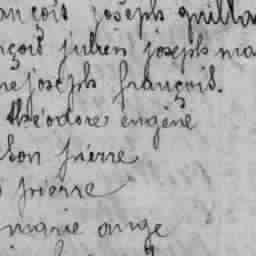 ançois joseph guilla
nçois julien joseph ma
re joseph françois.
théodore eugène
pierre
pierre
marie ange